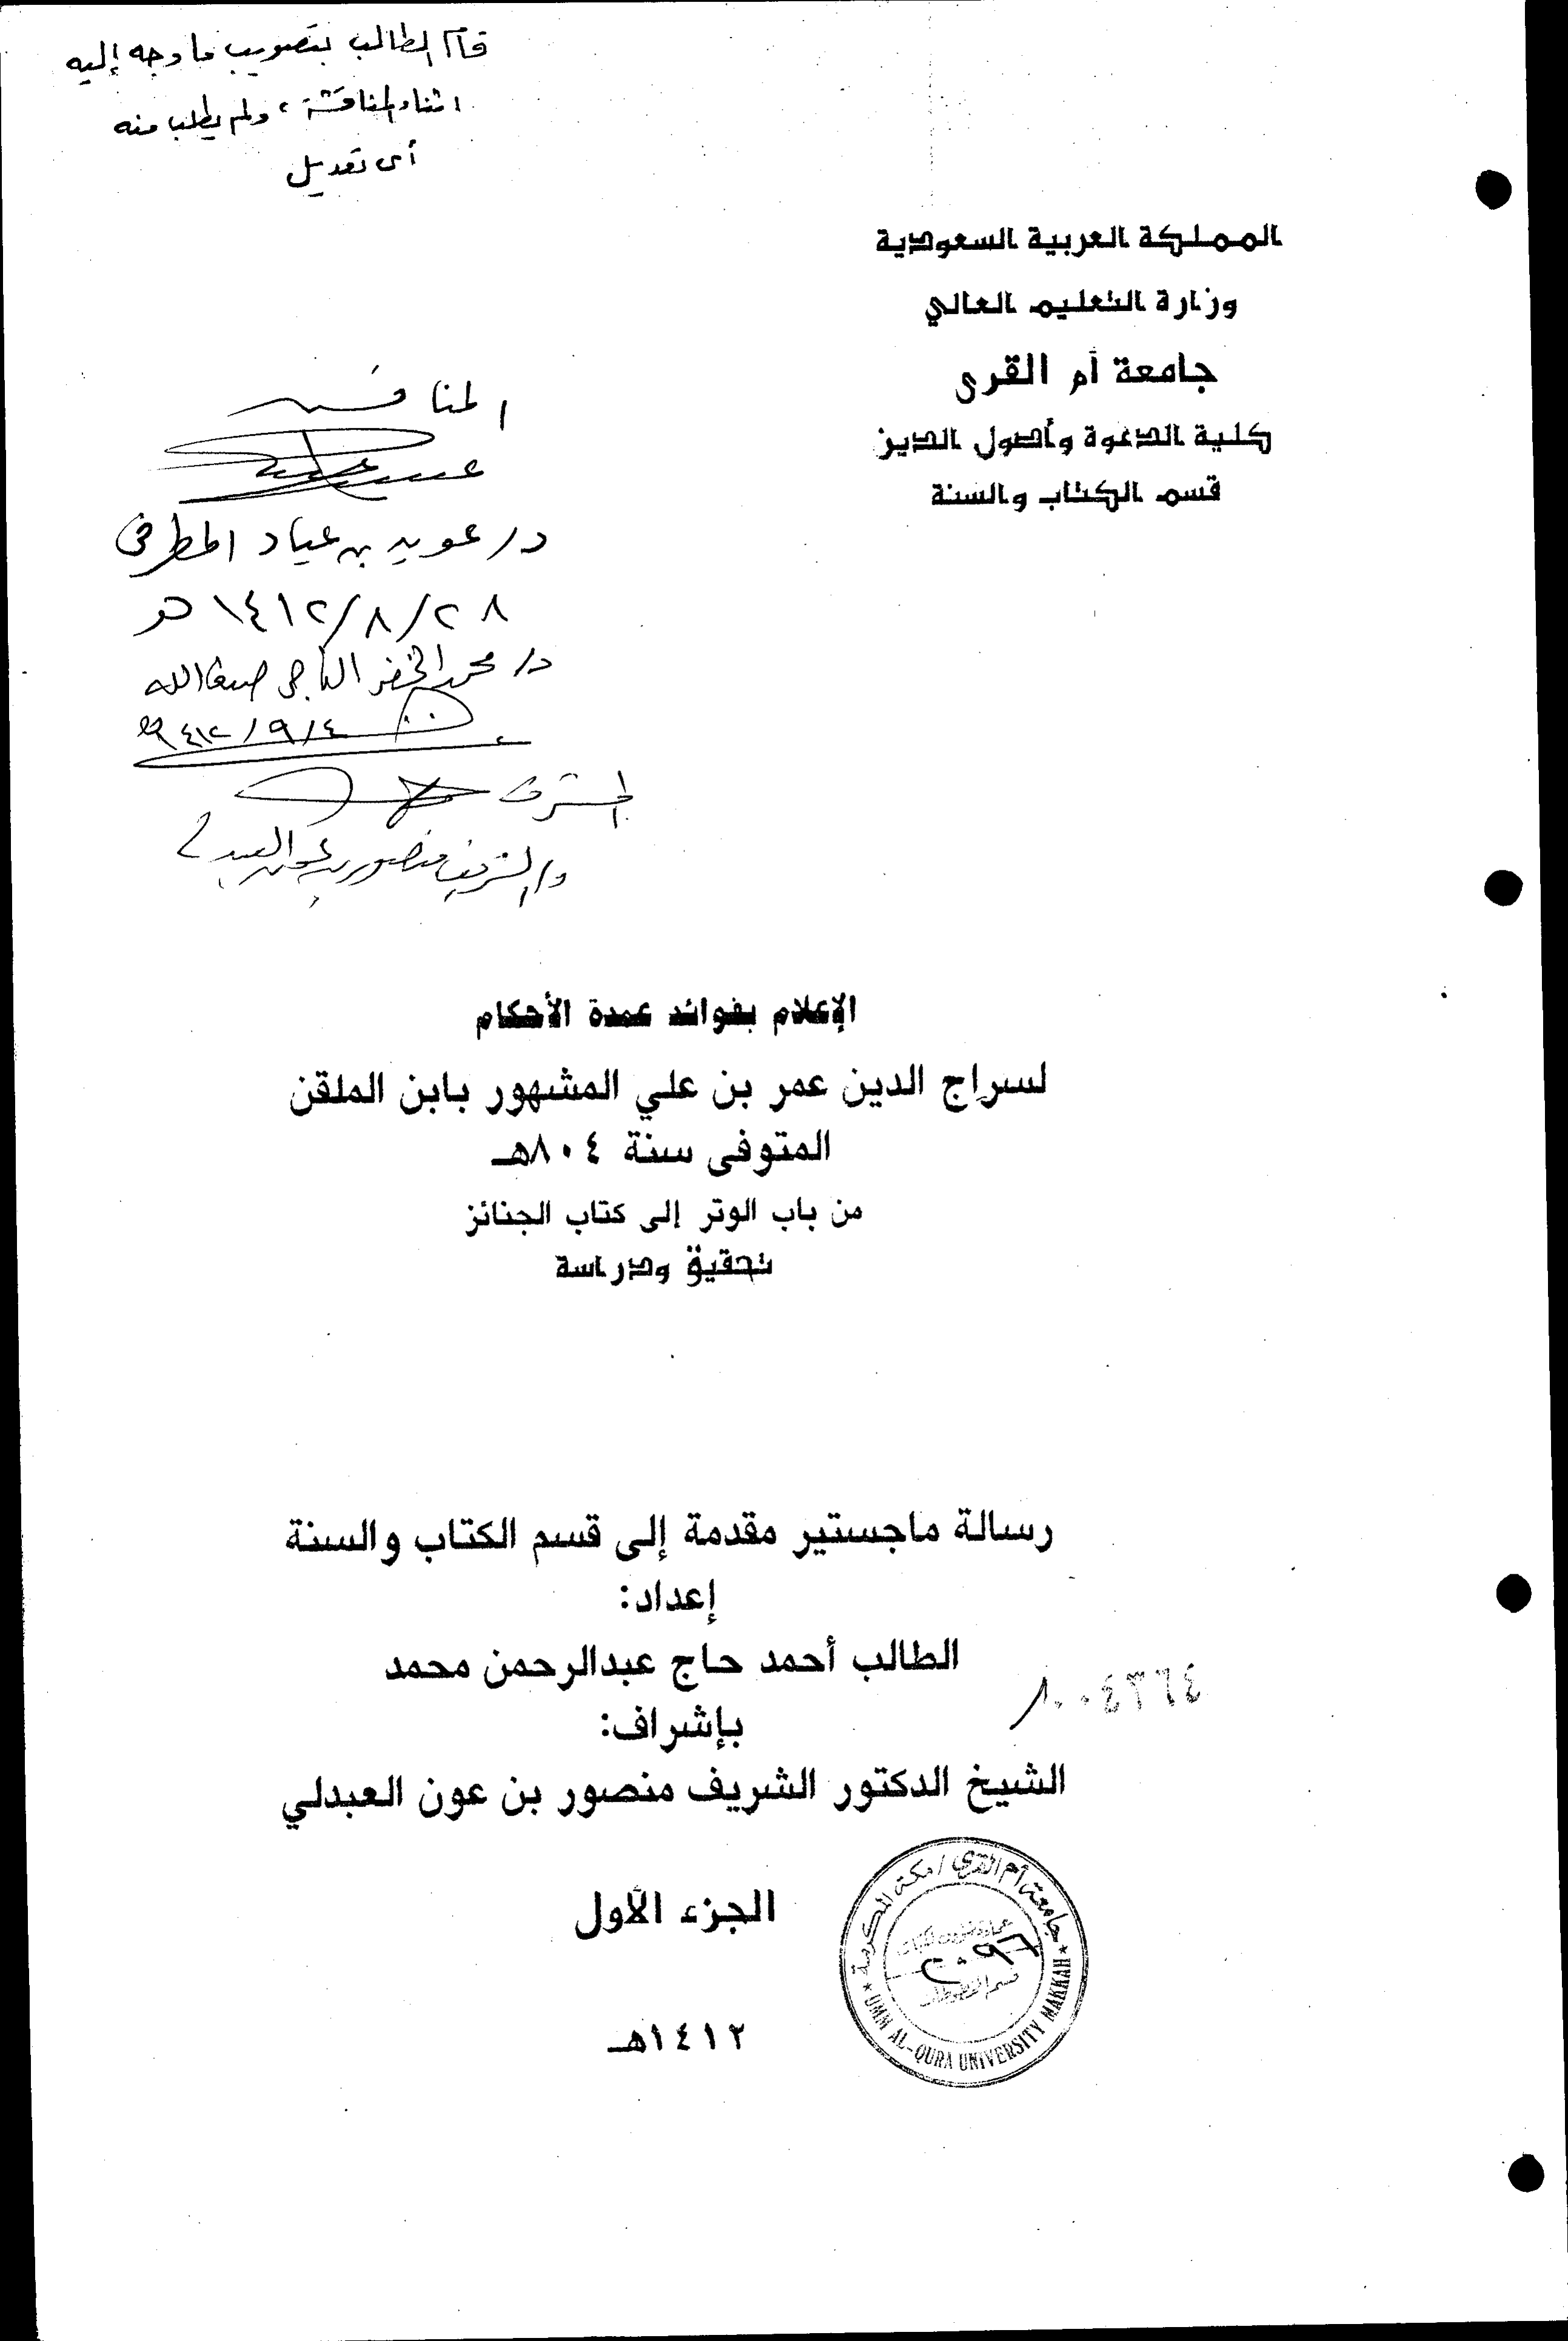 قام الطالب بتصويب ما وجه إليه
اثناء المناقشة، ولم يطلب منه
أى تعديل
المملكة العربية السعودية
وزارة التعليم العالي
جامعة أم القرى
كلية الدعوة وأصول الدين
قسم الكتاب والسنة
المناقش
د/ عويد بن عياد المطرفى
٢٨/٨/١٤١٢ هـ
د/ محمد الخضر الناجي ضيف الله
٤/٩/١٤١٢هـ
المشرف
د/ الشريف منصور بن عون العبدلي
الإعلام بفوائد عمدة الأحكام
لسراج الدين عمر بن علي المشهور بابن الملقن
المتوفى سنة ٨٠٤هـ
من باب الوتر إلى كتاب الجنائز
تحقيق ودراسة
رسالة ماجستير مقدمة إلى قسم الكتاب والسنة
إعداد:
الطالب أحمد حاج عبدالرحمن محمد
بإشراف:
الشيخ الدكتور الشريف منصور بن عون العبدلي
الجزء الأول
١٤١٢هـ
جامعة أم القرى / مكة المكرمة
٢٠٩٦
قسم المخطوطات
UMM AL-QURA UNIVERSITY MAKKAH